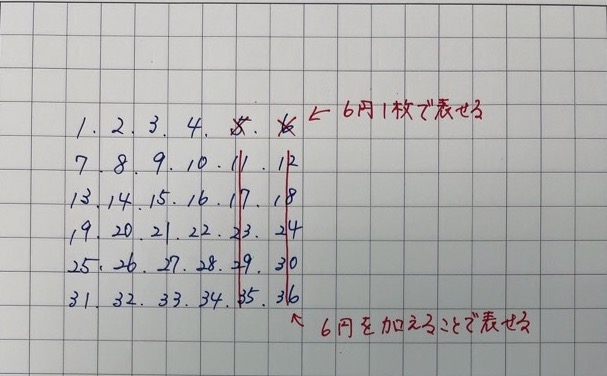 1. 2. 3. 4. 5. 6 ← 6円1枚で表せる
7. 8. 9. 10. 11. 12
13. 14. 15. 16. 17. 18
19. 20. 21. 22. 23. 24
25. 26. 27. 28. 29. 30
31. 32. 33. 34. 35. 36
↖ 6円を加えることで表せる